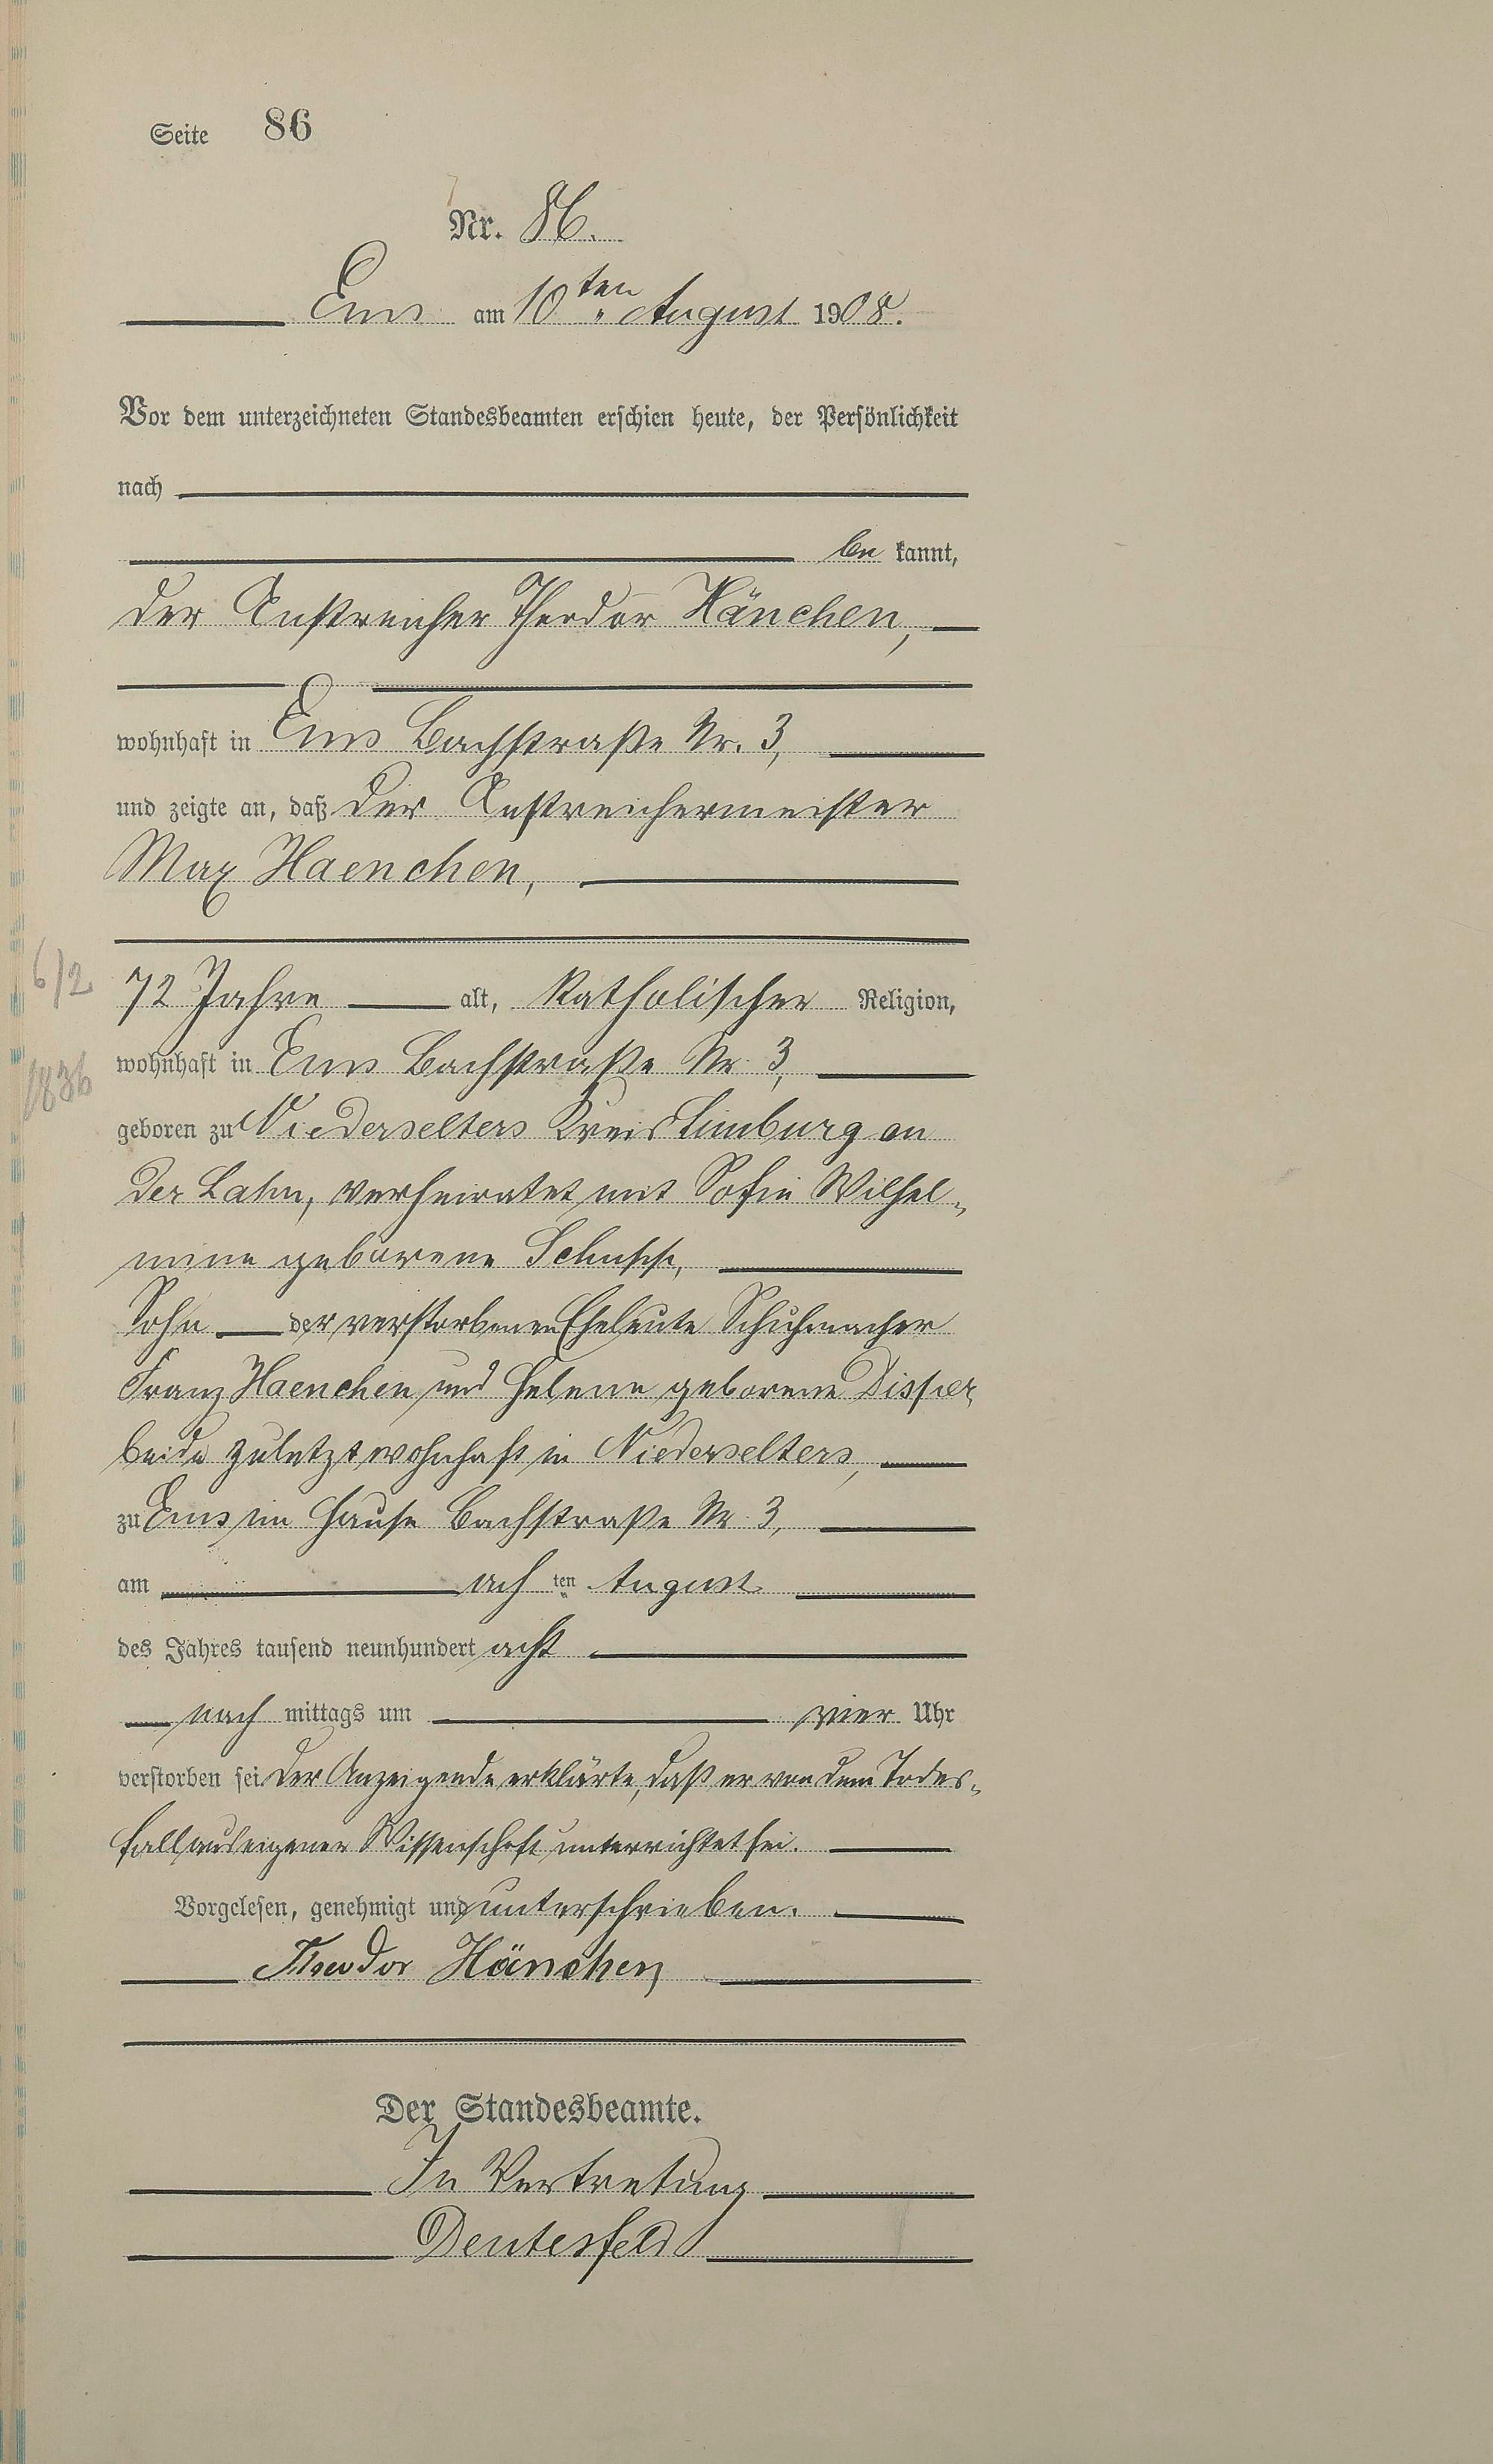 Seite 86
Nr. 86.
Ems am 10ten August 1908.
Vor dem unterzeichneten Standesbeamten erschien heute, der Persönlichkeit
nach
be kannt,
der Anstreicher Theodor Hänchen,
wohnhaft in Ems Bachstraße Nr. 3,
und zeigte an, daß der Anstreichermeister
Max Haenchen,
6/2 72 Jahre alt, katholischer Religion,
1836 wohnhaft in Ems Bachstraße Nr. 3,
geboren zu Niederselters Kreis Limburg an
der Lahn, verheiratet mit Sofie Wilhel-
mine geborene Schupp,
Sohn der verstorbenen Eheleute Schuhmacher
Franz Haenchen und Helene geborene
beide zuletzt wohnhaft in Niederselters,
zu Ems im Hause Bachstraße Nr. 3,
am ach ten August
des Jahres tausend neunhundert acht
nach mittags um vier Uhr
verstorben sei. Der Anzeigende erklärte, daß er von dem Todes-
fall aus eigener Wissenschaft unterrichtet sei.
Vorgelesen, genehmigt und unterschrieben.
Theodor Hänchen
Der Standesbeamte.
In Vertretung
Deutesfeld